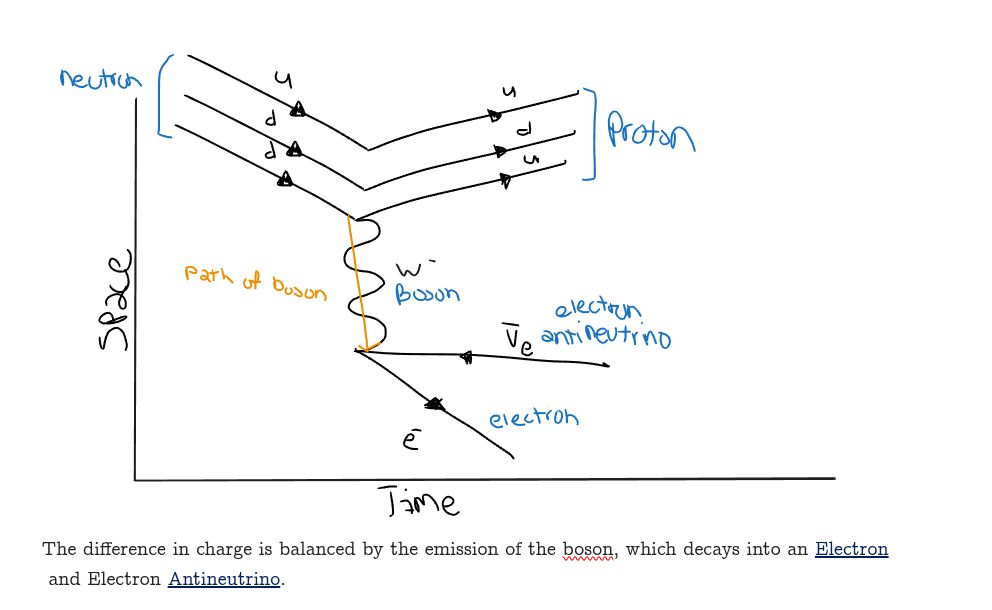 neutron
u
d
d
u
d
u
Proton
Space
Path of boson
W⁻
Boson
electron
antineutrino
ν̄e
electron
e⁻
Time
The difference in charge is balanced by the emission of the boson, which decays into an Electron
and Electron Antineutrino.